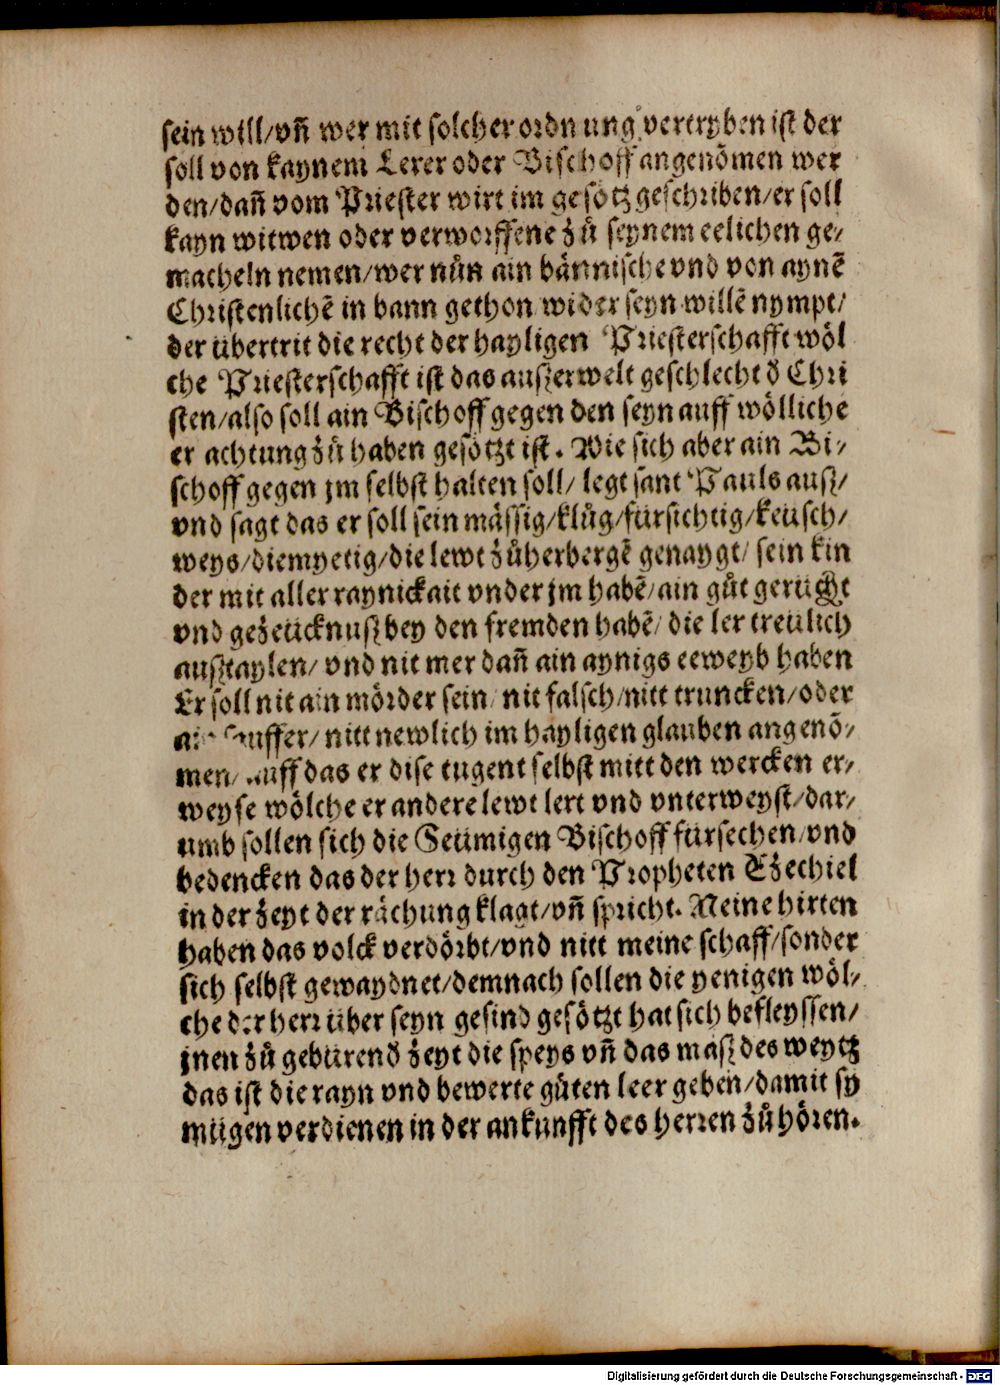 sein will/vn̄ wer mit solcher ordnung vertryben ist der
soll von kaynem Lerer oder Bischoff angenōmen wer
den/dan̄ vom Priester wirt im gesötz geschriben/er soll
kayn witwen oder verworffene zů seynem eelichen ge/
macheln nemen/wer nůn ain bännische vnd von aynē
Christenlichē in bann gethon wider seyn willē nympt/
der übertrit die recht der hayligen Priesterschafft wöl
che Priesterschafft ist das auszerwelt geschlecht d Chri
sten/also soll ain Bischoff gegen den seyn auff wölliche
er achtung zů haben gesötzt ist. Wie sich aber ain Bi/
schoff gegen jm selbst halten soll/ legt sant Pauls ausz/
vnd sagt das er soll sein mässig/klůg/fürsichtig/keüsch/
weys/diemyetig/die lewt zůherbergē genaygt/ sein kin
der mit aller raynickait vnder jm habē/ain gůt gerücht
vnd gezeücknusz bey den fremden habē/ die ler treülich
ausztaylen/ vnd nit mer dan̄ ain aynigs eeweyb haben
Er soll nit ain mörder sein/ nit falsch/nitt truncken/oder
ain sauffer/ nitt newlich im hayligen glauben angenō/
men/ auff das er dise tugent selbst mitt den wercken er/
weyse wölche er andere lewt lert vnd vnterweyst/dar/
umb sollen sich die Seümigen Bischoff fürsechen/vnd
bedencken das der herr durch den Propheten Ezechiel
in der zeyt der rächung klagt/vn̄ spricht. Meine hirten
haben das volck verdörbt/vnd nitt meine schaff/sonder
sich selbst gewaydnet/demnach sollen die yenigen wöl/
che der herr über seyn gesind gesötzt hat sich befleyssen/
jnen zů gebürend zeyt die speys vn̄ das masz des weytz
das ist die rayn vnd bewerte gůten leer geben/damit sy
mügen verdienen in der ankunfft des herren zů hören.
Digitalisierung gefördert durch die Deutsche Forschungsgemeinschaft - DFG